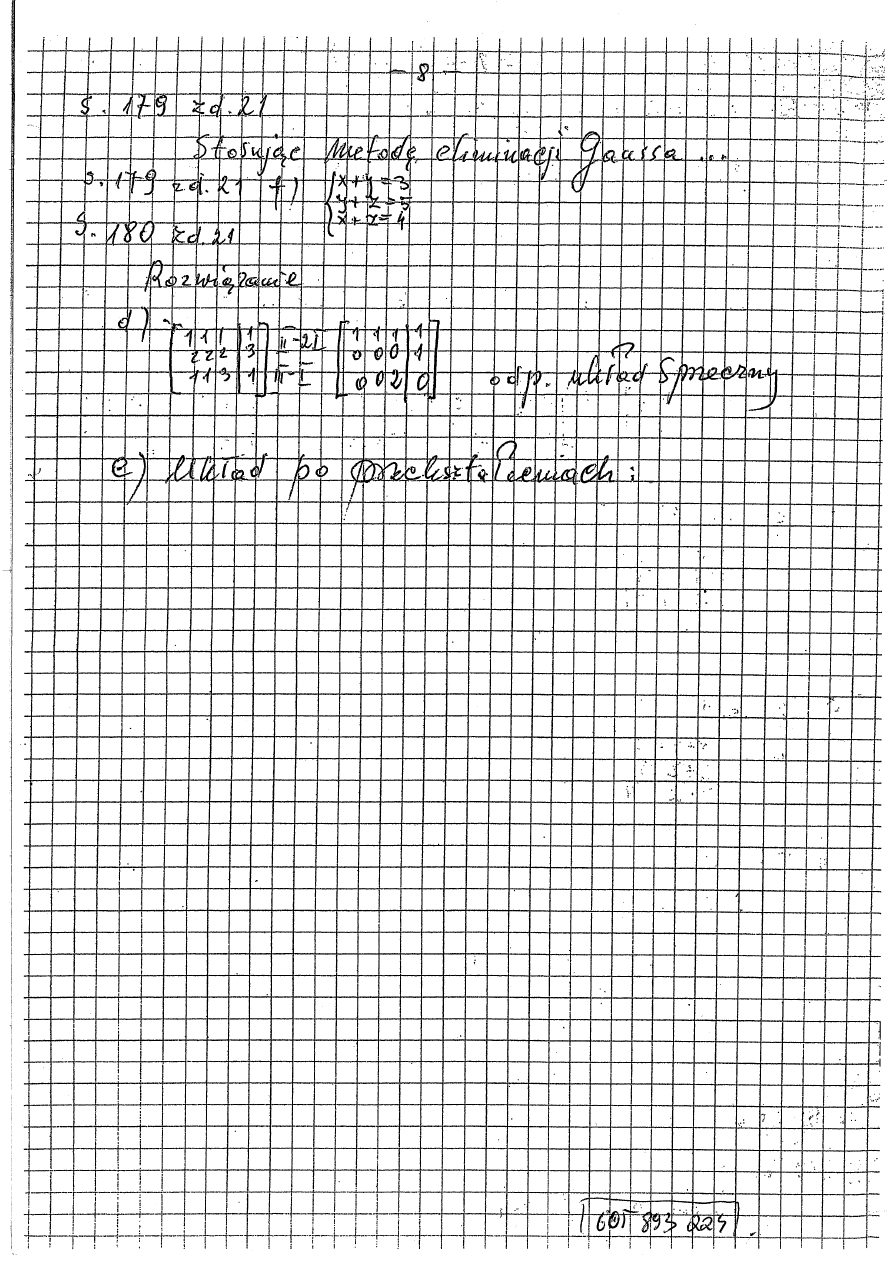 — 8 —
s. 179 zd. 21
Stosując metodę eliminacji Gaussa ...
s. 179 zd. 21 f) { x + y = 3
y + z = 5
x + z = 4
s. 180 zd. 21
Rozwiązanie
d) [ 1 1 1 | 1 ] [ 1 1 1 | 1 ]
2 2 2 | 3 II-2I 0 0 0 | 1
1 1 3 | 1 III-I 0 0 2 | 0 odp. układ sprzeczny
e) Układ po przekształceniach :
601 893 224